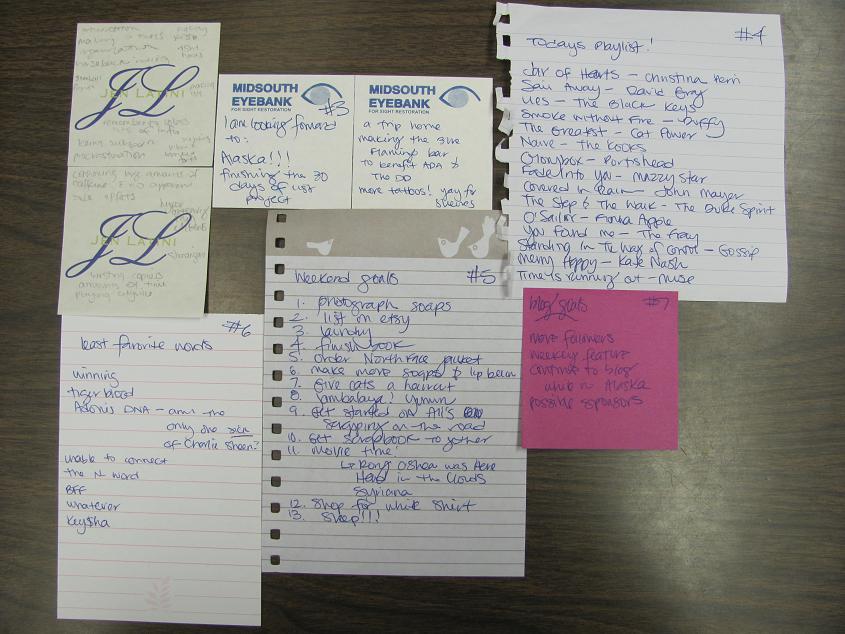 making a
organization
JL
JEN LATINI
procrastination
consuming large amounts of
caffeine & no apparent
side effects
JL
JEN LATINI
writing copious
amounts of time
playing
MIDSOUTH
EYEBANK
FOR SIGHT RESTORATION
#3
I am looking forward
to:
Alaska!!!
finishing the 30
days of list
project
MIDSOUTH
EYEBANK
FOR SIGHT RESTORATION
a trip home
making the 3rd
Flaming bar
to benefit ADA &
The DD
more tattoos! yay for
sleeves
#4
Todays Playlist!
Jar of Hearts - Christina Perri
Sail Away - David Gray
Lies - The Black Keys
Smoke without Fire - Duffy
The Greatest - Cat Power
Naive - The Kooks
Glorybox - Portishead
Fade Into You - Mazzy Star
Covered in Rain - John Mayer
The Step & The Walk - The Duke Spirit
O'Sailor - Fiona Apple
You Found me - The Fray
Standing in the way of control - Gossip
Merry Happy - Kate Nash
Time is running out - Muse
Weekend goals #5
1. photograph soaps
2. list on etsy
3. laundry
4. finish book
5. order NorthFace jacket
6. make more soaps & lip balm
7. Give cats a haircut
8. Jambalaya! Yumm
9. Get started on Ali's
scrapping on the road
10. Get scrapbook together
11. Movie time!
Rory O'Shea was Here
Head in the Clouds
Syriana
12. Shop for white shirt
13. Sleep!!!
#6
least favorite words
winning
tiger blood
Adonis DNA - am I the
only one sick
of Charlie Sheen?
unable to connect
the N word
BFF
whatever
Key$ha
blog goals #7
more followers
weekly feature
continue to blog
while in Alaska
possible sponsors